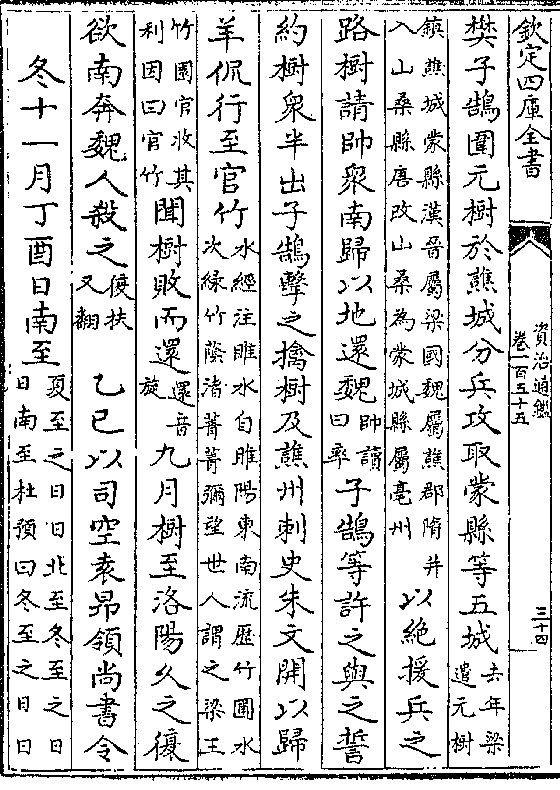 欽定四庫全書
資治通鑑
卷一百五十五
三十四
樊子鵠圍元樹於譙城分兵攻取蒙縣等五城去年梁遣元樹
鎮譙城蒙縣漢晉屬梁國魏屬譙郡隋并入山桑縣唐改山桑為蒙城縣屬亳州以絶援兵之
路樹請帥衆南歸以地還魏帥讀曰率子鵠等許之與之誓
約樹衆半出子鵠擊之擒樹及譙州刺史朱文開以歸
羊侃行至官竹水經注睢水自睢陽東南流歷竹圃水次緑竹蔭渚菁菁彌望世人謂之梁王
竹園官收其利因曰官竹聞樹敗而還還音旋九月樹至洛陽久之復
欲南奔魏人殺之復扶又翻乙巳以司空袁昂領尚書令
冬十一月丁酉日南至夏至之日日北至冬至之日日南至杜預曰冬至之日日